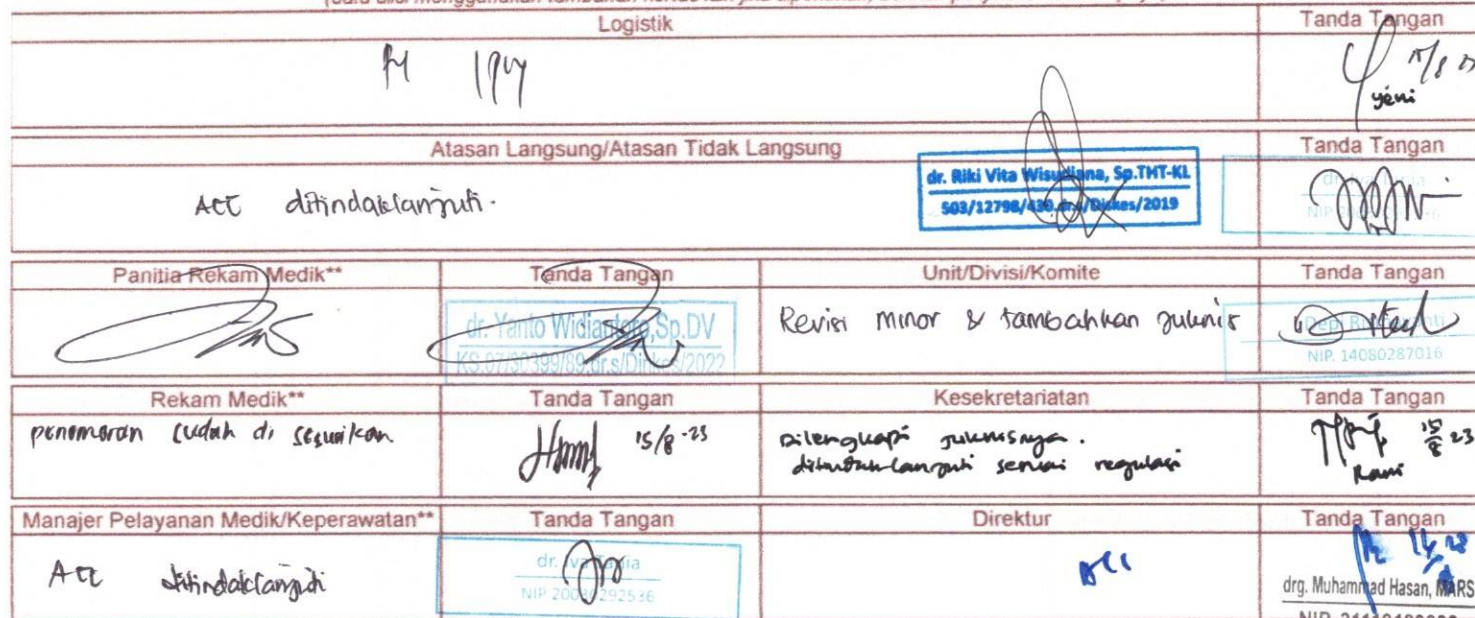 Logistik
Tanda Tangan
yeni
Atasan Langsung/Atasan Tidak Langsung
Tanda Tangan
ACC ditindaklanjuti.
dr. Riki Vita Wisudiana, Sp.THT-KL
503/12798/
/Dinkes/2019
NIP
Panitia Rekam Medik**
Tanda Tangan
Unit/Divisi/Komite
Tanda Tangan
dr. Yanto Widiantoro,Sp.DV
KS.07/30399/89.dr.s/Dinkes/2022
Revisi minor & tambahkan juknis
NIP. 14080287016
Rekam Medik**
Tanda Tangan
Kesekretariatan
Tanda Tangan
penomoran sudah di sesuaikan
15/8-23
Dilengkapi juknisnya.
ditindaklanjuti sesuai regulasi
15/8 23
Rani
Manajer Pelayanan Medik/Keperawatan**
Tanda Tangan
Direktur
Tanda Tangan
ACC ditindaklanjuti
dr. Iva Tania
NIP 20030292536
ACC
drg. Muhammad Hasan, MARS
NIP.